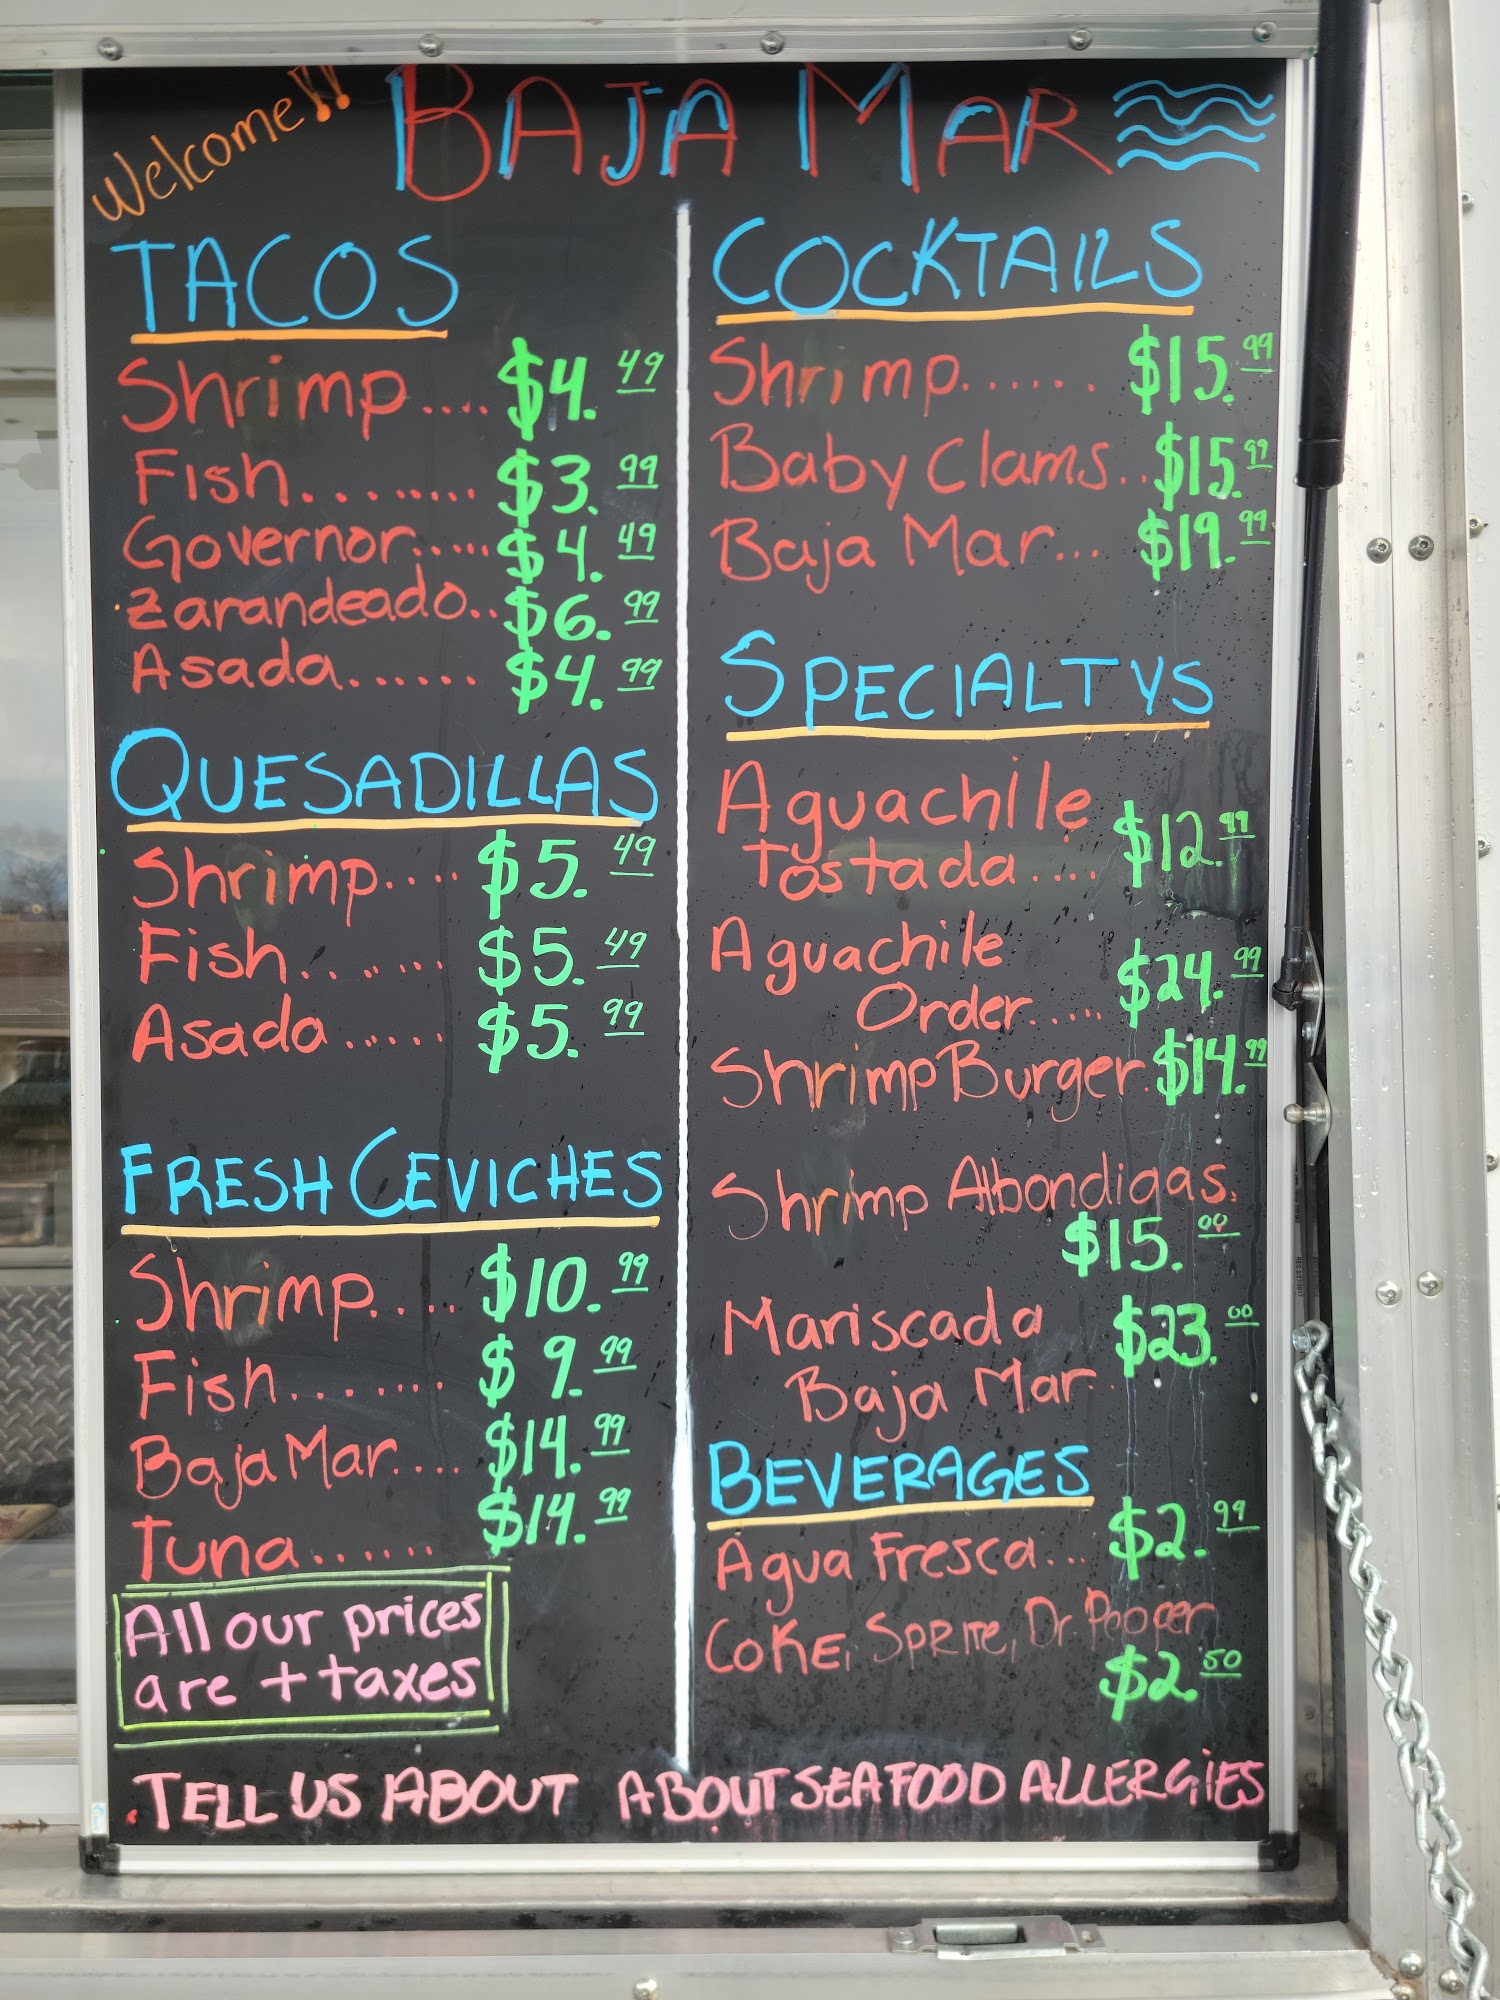 Welcome!!
BAJA MAR
TACOS
Shrimp.... $4.49
Fish......... $3.99
Governor..... $4.49
Zarandeado.. $6.99
Asada...... $4.99
QUESADILLAS
Shrimp.... $5.49
Fish....... $5.49
Asada..... $5.99
FRESH CEVICHES
Shrimp.... $10.99
Fish....... $9.99
Baja Mar.... $14.99
Tuna...... $14.99
All our prices
are + taxes
COCKTAILS
Shrimp...... $15.99
Baby Clams.. $15.99
Baja Mar... $19.99
SPECIALTYS
Aguachile
Tostada.... $12.99
Aguachile
Order..... $24.99
Shrimp Burger. $14.99
Shrimp Albondigas.
$15.00
Mariscada $23.00
Baja Mar.
BEVERAGES
Agua Fresca... $2.99
COKE, SPRITE, Dr. Pepper
$2.50
TELL US ABOUT ABOUT SEAFOOD ALLERGIES